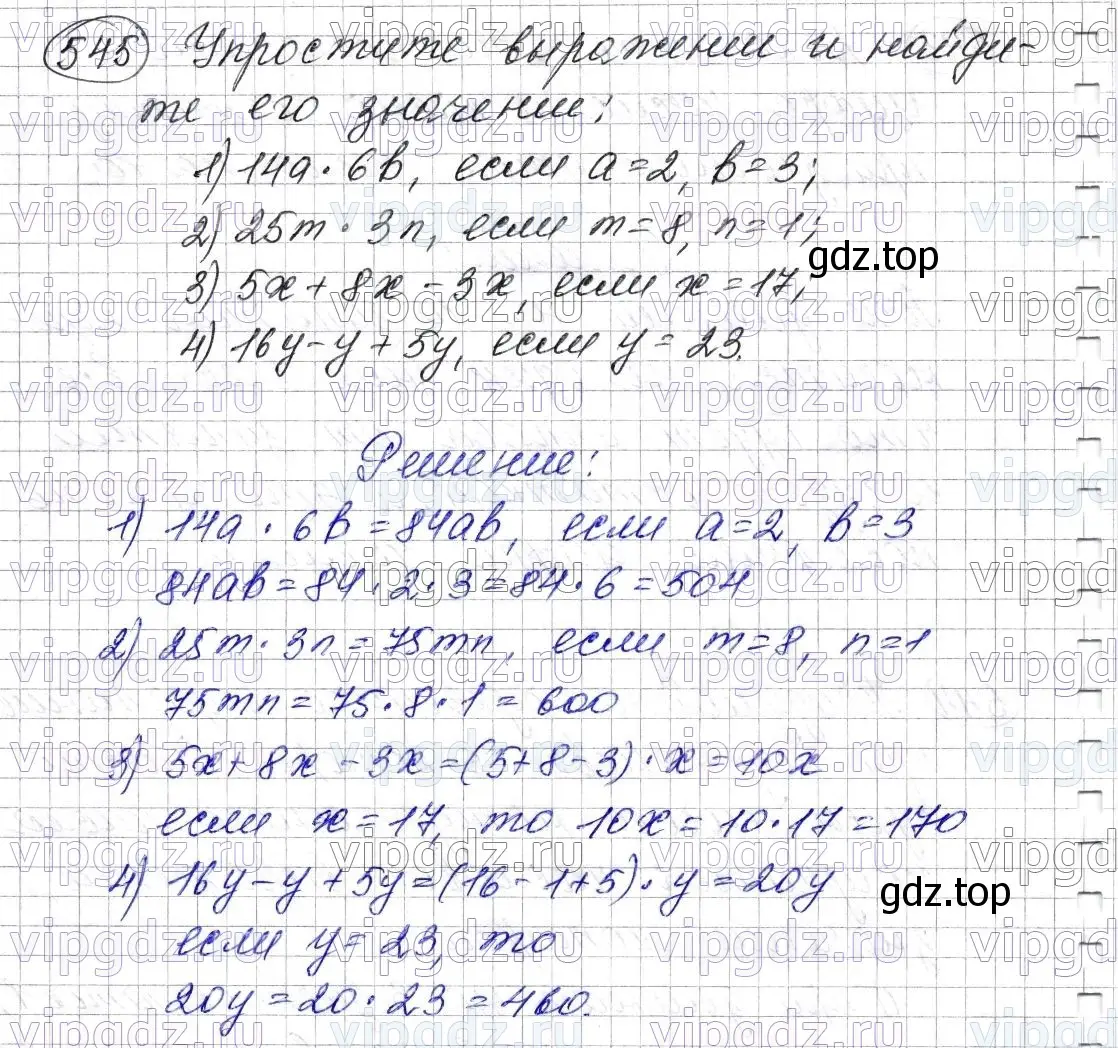 545 Упростите выражении и найди-
те его значении:
1) 14a · 6b, если a=2, b=3;
2) 25m · 3n, если m=8, n=1;
gdz.top
3) 5x + 8x - 3x, если x=17;
4) 16y - y + 5y, если y = 23.
Решение:
1) 14a · 6b = 84ab, если a=2, b=3
84ab = 84 · 2 · 3 = 84 · 6 = 504
2) 25m · 3n = 75mn, если m=8, n=1
75mn = 75 · 8 · 1 = 600
3) 5x + 8x - 3x = (5+8-3) · x = 10x
если x=17, то 10x = 10 · 17 = 170
4) 16y - y + 5y = (16 - 1 + 5) · y = 20y
gdz.top
если y = 23, то
20y = 20 · 23 = 460.
vipgdz.ru